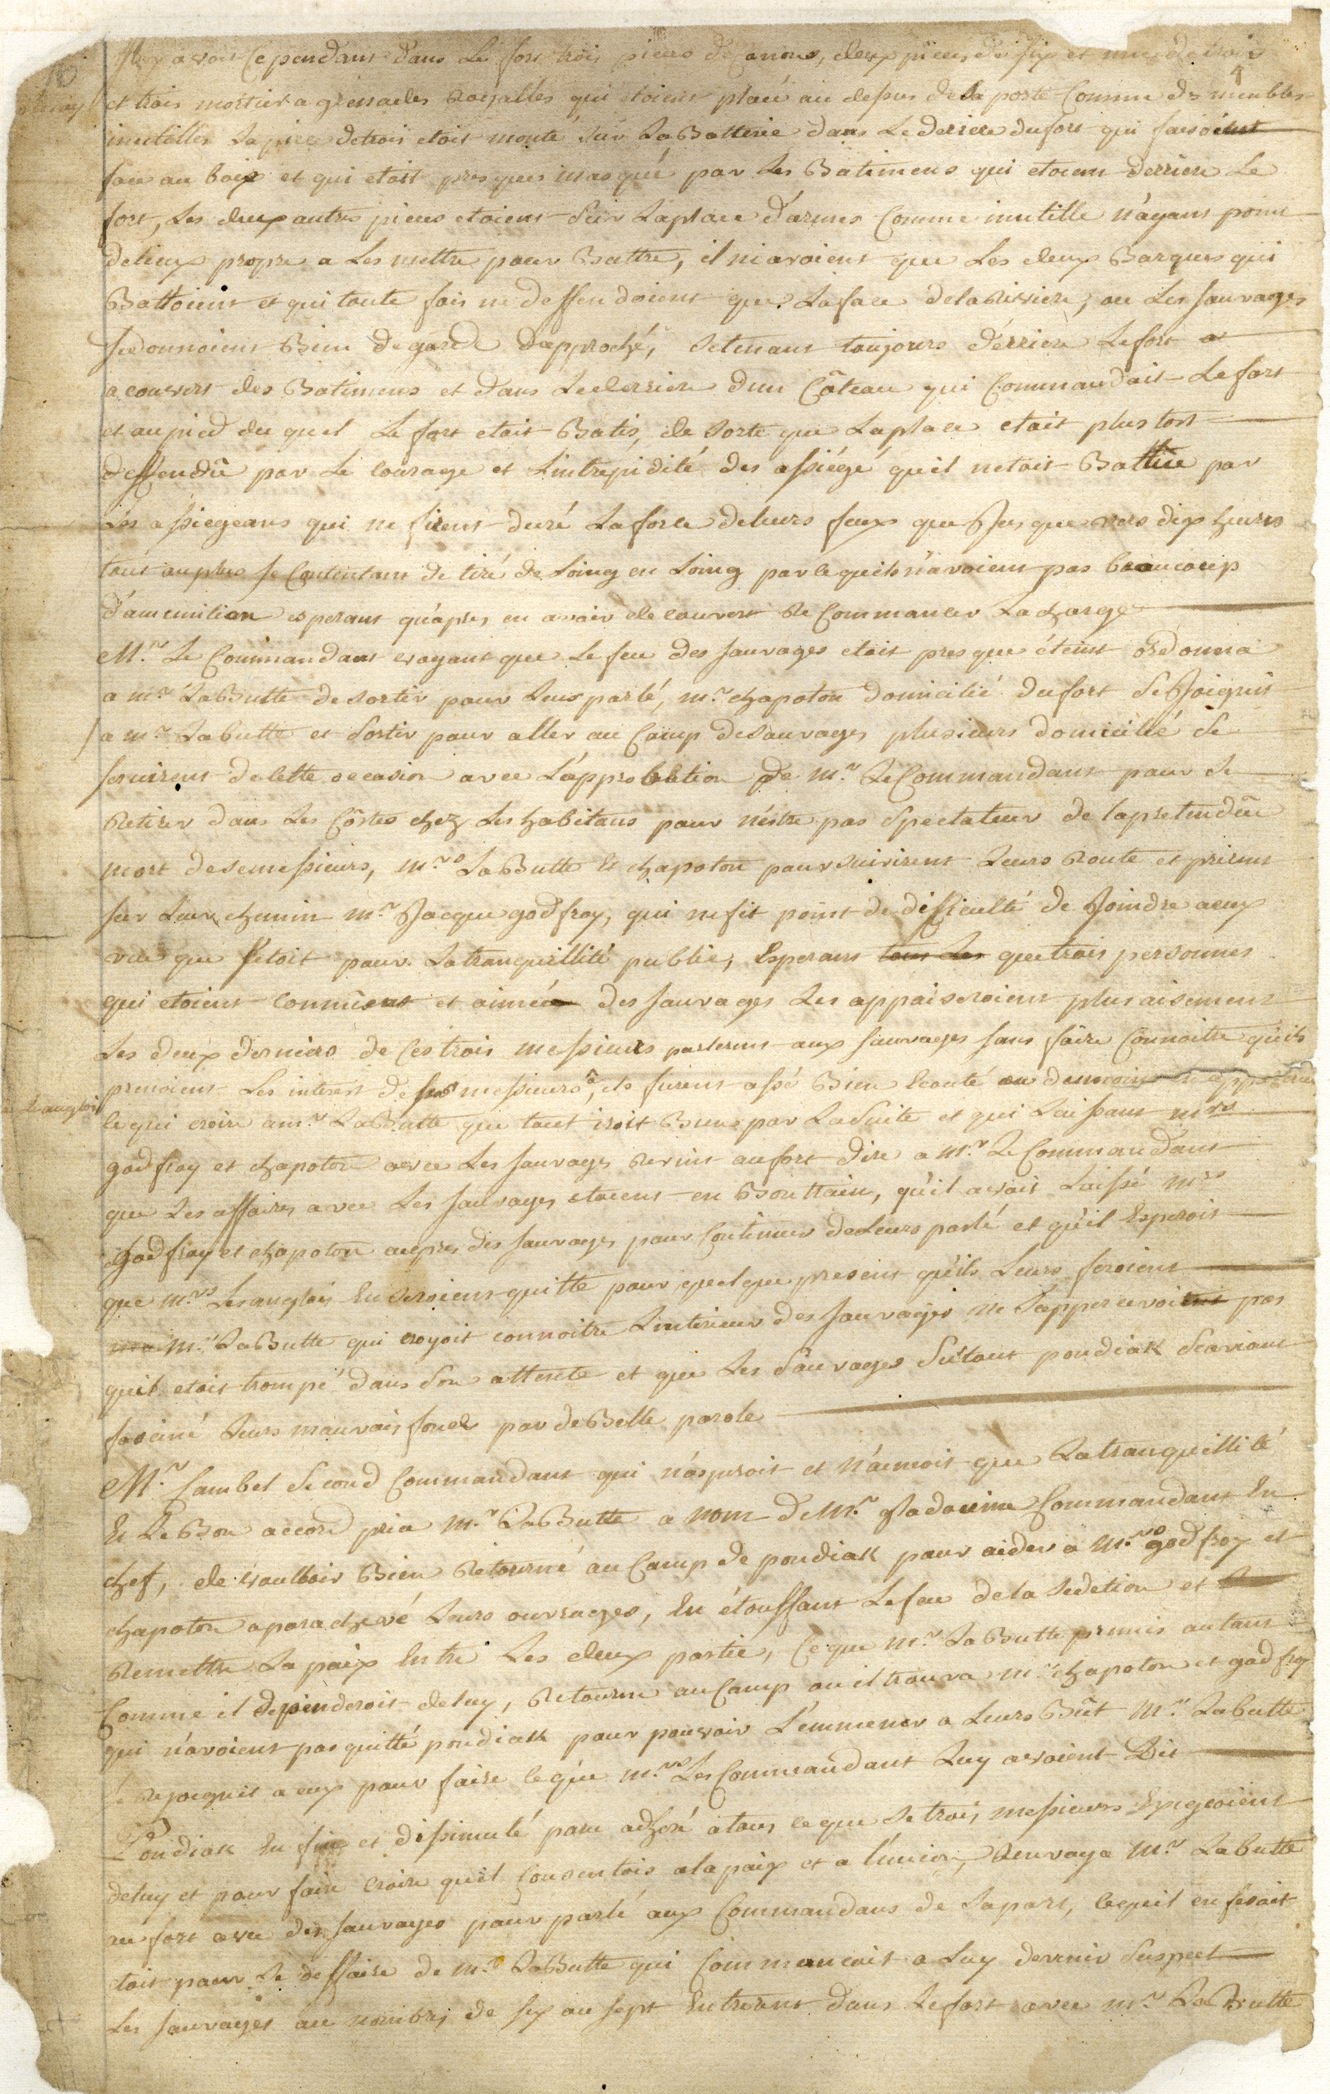 Il y avoit Cependant dans Le fort trois pieces de Canons, deux pieces de six et une de trois
et trois mortiers a grenades Royalles qui etoient placé au dessus de La porte Comme des meubles
inutilles La piece de trois etoit monté sur La Batterie dans Le deriere du fort qui faisoient
face au boix et qui etoit presques masqué par Les Batimens qui etoient derriere Le
fort, Les deux autres pieces etoient sur La place d'armes Comme inutille n'ayant point
de lieux propre a Les mettre pour Battre, il ni avoient que Les deux Barques qui
Battoient et qui toute fois ne deffendoient que La face de la Rivière, ou Les sauvages
se donnoient Bien de garde d'approché, se tenant toujours dérriere Le fort a
a couvert des Batimens et dans Le derriere d'un Côteau qui Commandait Le fort
et au pied du quel Le fort etait Batis, de sorte que La place etait plus tost
deffendüe par Le courage et L'intrépidité des assiégé qu'il netoit Battüe par
Les assiegeans qui ne firent duré La force de leurs feux que Jusque vers dix heures
tout au plus se Contentant de tiré de Loing en Loing par ce quils n'avoient pas beaucoup
d'amunition esperant qu'après en avoir decouvert Re Commancer La charge
Mr. Le Commandant voyant que Le feu des sauvages etoit presque éteint Ordonna
a mr. LaButte de sortir pour Leurs parlé, mr. chapoton domicilié du fort Se Joignit
a mr. Labutte et Sortir pour aller au Camp de sauvages plusieurs domicillé Se
servirent de cette occasion avec L'approbation de mr. Le Commandant pour Se
Retirer dans Les Côstes chez Les habitans pour n'éstre pas Spectateur de la pretendüe
mort de ses messieurs, mrs. LaButte et chapoton poursuivirent Leurs Route et prirent
sur Leur chemin mr. Jacque godfroy, qui ne fit point de difficulté de Joindre a eux
vue que s'etoit pour La tranquillité public, Esperant tous Les que trois personnes
qui etoient connües et aimée des sauvages Les appaiseroient plus aisement
Les deux derniers de Ces trois messieurs parlerent aux sauvages sans faire Connoitre qu'ils
prenoient Les interest de ses messieurs, ils furent assé Bien Ecouté au dumoins en
anglois
ce qui croire a mr. LaButte que tout iroit Bien par La Suite et qui Laissant mrs
godfroy et chapoton avec Les sauvages Revint au fort dire a mr. Le Commandant
que Les affaires avec Les sauvages etoient en Bon train, qu'il avoit Laissé mrs
Godfroy et chapoton aupres des sauvages pour Continuer de Leurs parlé et qu'il Esperoit
que mrs. Les anglois En Seroient quitte pour quelque present qu'ils Leurs feroient
mr. LaButte qui croyoit connoitre L'interieur des sauvages ne s'appercevoient pas
quil etoit trompé dans Son attente et que Les Sauvages Surtout pondiak Scavant
fasciné Leurs mauvais fond par de Belle parole
Mr. Cambel Second Commandant qui n'aspiroit et n'aimoit que La tranquillité
Et Le Bon accord pria mr. LaButte a nom de mr. gladouine Commandant En
chef, de voulloir Bien Retourné au Camp de pondiak pour aider a mrs. godfroy et
chapoton a parachevé Leurs ouvrages, En étouffant Le feu de la Sedetion et
Remettre La paix Entre Les deux partie, Ce que mr. LaButte promis autant
Comme il dependeroit de luy, Retourne au Camp ou il trouva mrs. chapoton et godfroy
qui n'avoient pas quitté pondiak pour pouvoir L'emmener a Leurs Bût mr. Labutte
se rejoignit a eux pour faire ce que mrs. Les Commandant Luy avoient Dit
Pondiak En fin et dissimulé paru adhéré a tous ce que Se trois messieurs Exigeoient
de luy et pour faire croire qu'il Consentois a la paix et a l'union, Renvoya mr. Labutte
au fort avec des sauvages pour parlé aux Commandans de Sa part, ce quil en fesait
etoit pour Se deffaire de mr. LaButte qui Commancoit a Luy devenir Suspect
Les sauvages au nombre de six au sept Entrerent dans Le fort avec mr. LaButte